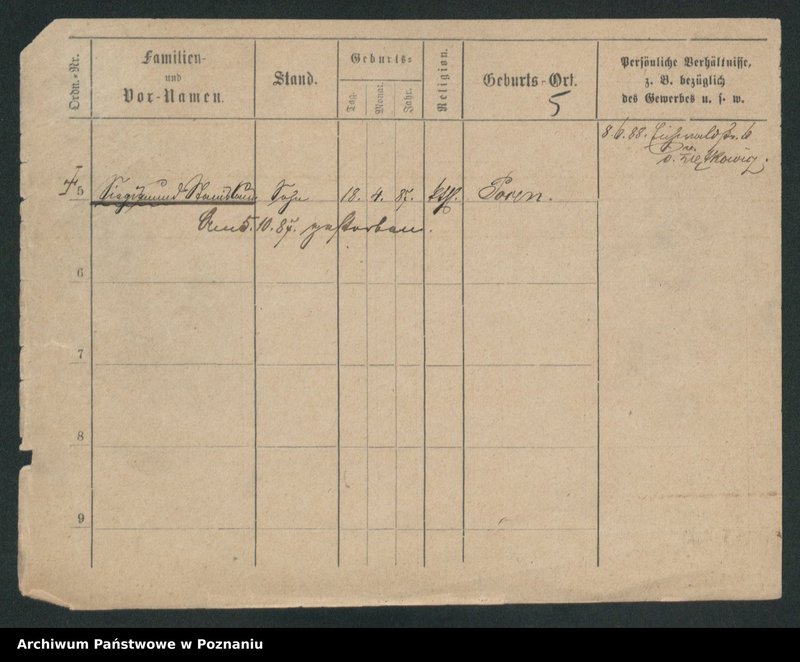 Ordn.-Nr.
Familien-
und
Vor-Namen.
Stand.
Geburts-
Tag.
Monat.
Jahr.
Religion.
Geburts-Ort.
5
Persönliche Verhältnisse,
z. B. bezüglich
des Gewerbes u. s. w.
8/6.88. Eichwaldstr. 6
5 Siegismund Stanislaus Sohn 18. 4. 87. kth. Posen.
Am 5.10.87. gestorben.
6
7
8
9
Archiwum Państwowe w Poznaniu